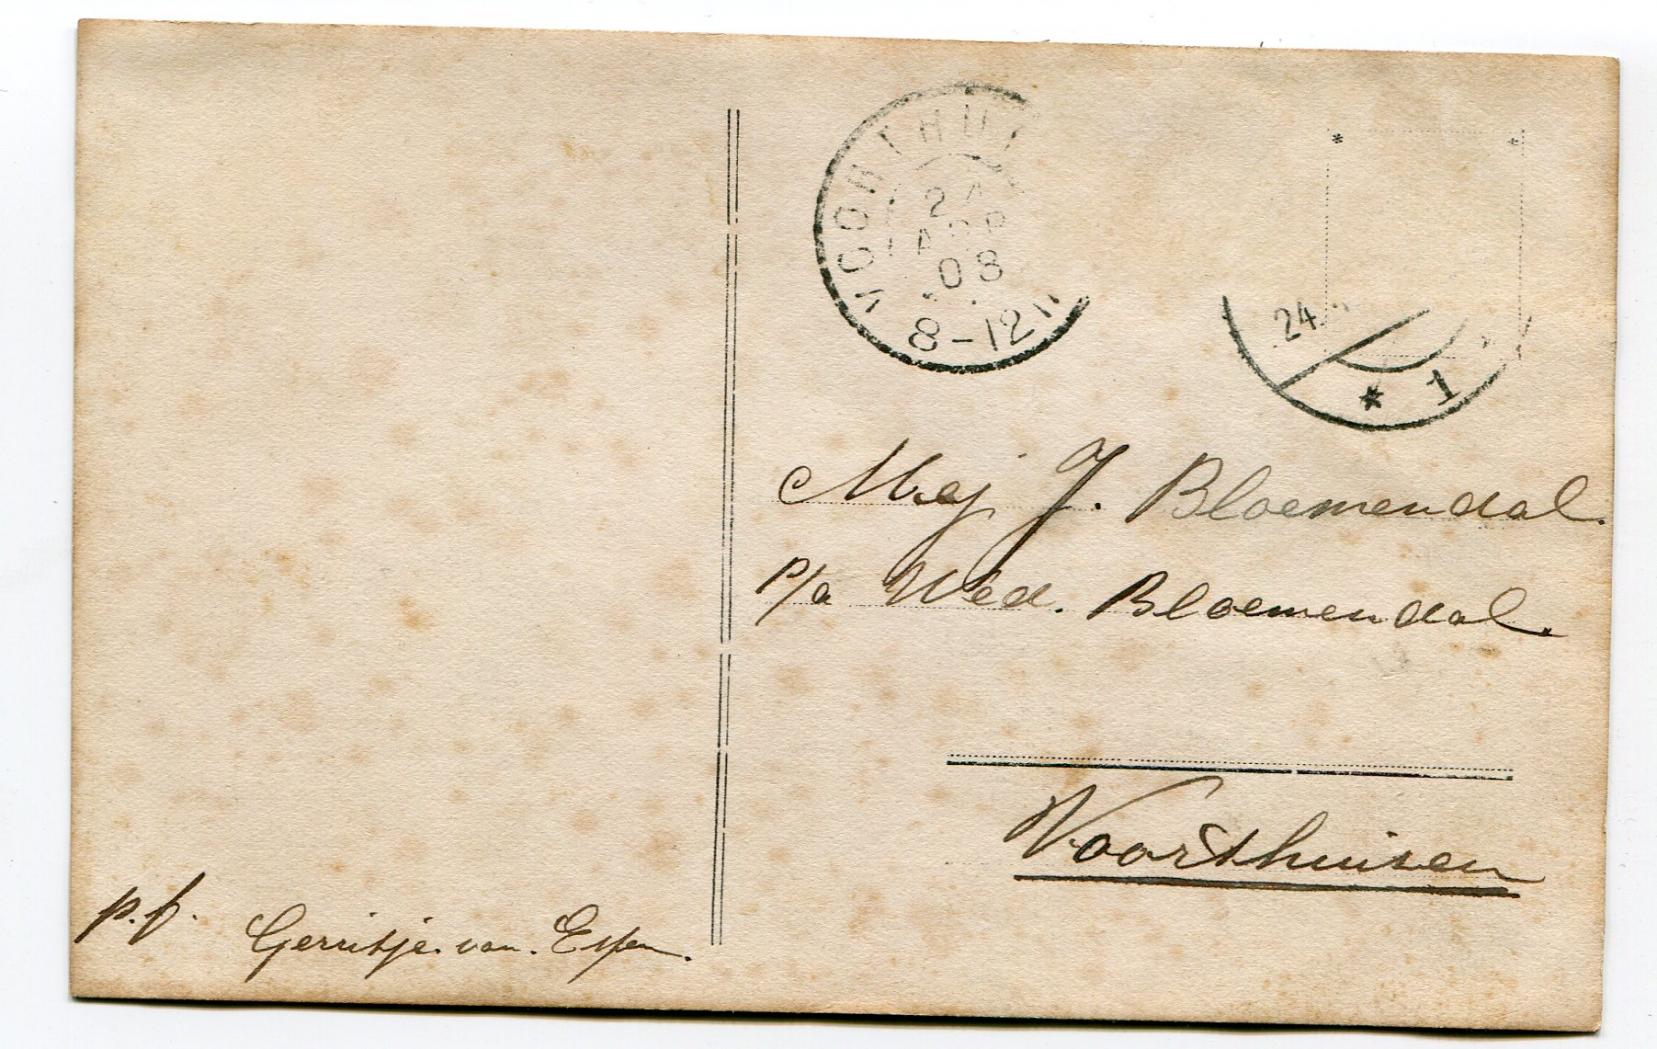 VOORTHUI
24
APR
08
8-12
24
* 1
Mej J. Bloemendal.
p/a Wed. Bloemendal.
Voorthuizen
p.f. Gerritje van Espen.